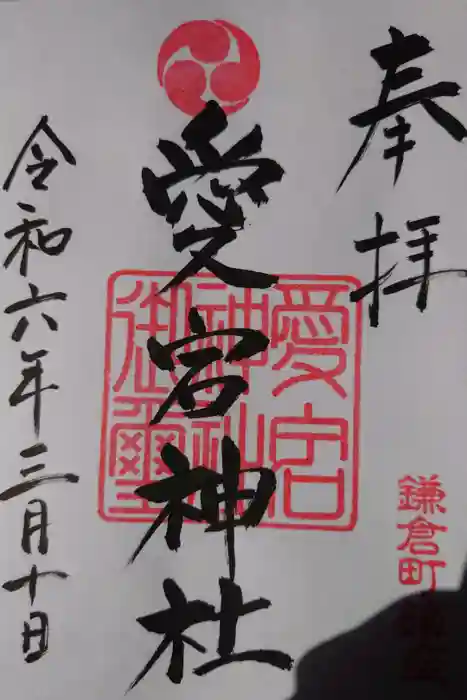 奉拝
鎌倉町鎮座
愛宮神社
愛宮神社御璽
令和六年三月十日